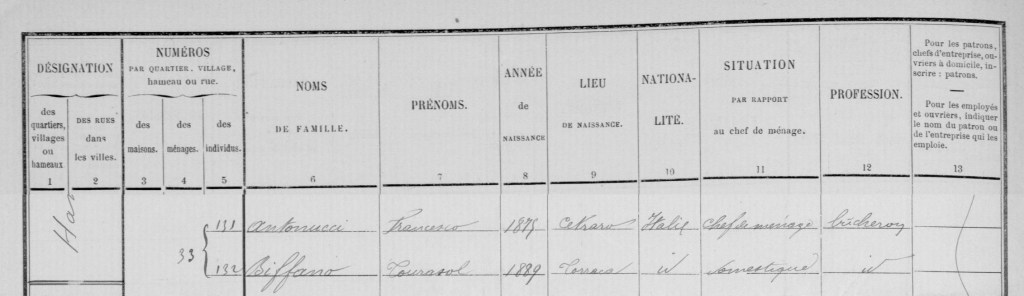 DÉSIGNATION
NUMÉROS
PAR QUARTIER, VILLAGE,
hameau ou rue.
des
quartiers,
villages
ou
hameaux
DES RUES
dans
les villes.
des
maisons.
des
ménages.
des
individus.
NOMS
DE FAMILLE.
PRÉNOMS.
ANNÉE
de
NAISSANCE
LIEU
DE NAISSANCE.
NATIONA-
LITÉ.
SITUATION
PAR RAPPORT
au chef de ménage.
PROFESSION.
Pour les patrons,
chefs d'entreprise, ou-
vriers à domicile, ins-
crire : patrons.
Pour les employés
et ouvriers, indiquer
le nom du patron ou
de l'entreprise qui les
emploie.
1 2 3 4 5 6 7 8 9 10 11 12 13
Ham
33
131 Antonucci Francesco 1875 Cetraro Italie chef de ménage bûcheron
132 Biffano 1889 id domestique id